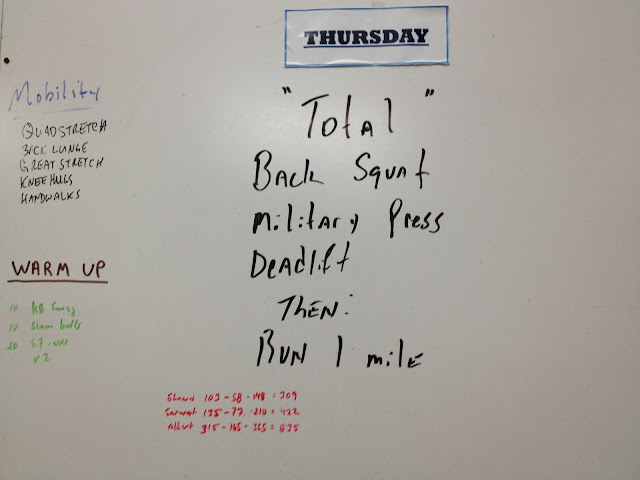 THURSDAY
Mobility
QUADSTRETCH
BACK LUNGE
GREAT STRETCH
KNEE HUGS
HANDWALKS
WARM UP
10 KB Swing
10 Slam balls
20 S.F. -
x 2
"Total"
BACK Squat
Military Press
Deadlift
THEN:
RUN 1 mile
103 - 58 - 148 = 309
135 - 77 - 210 = 422
Albert 315 - 165 - 355 = 835